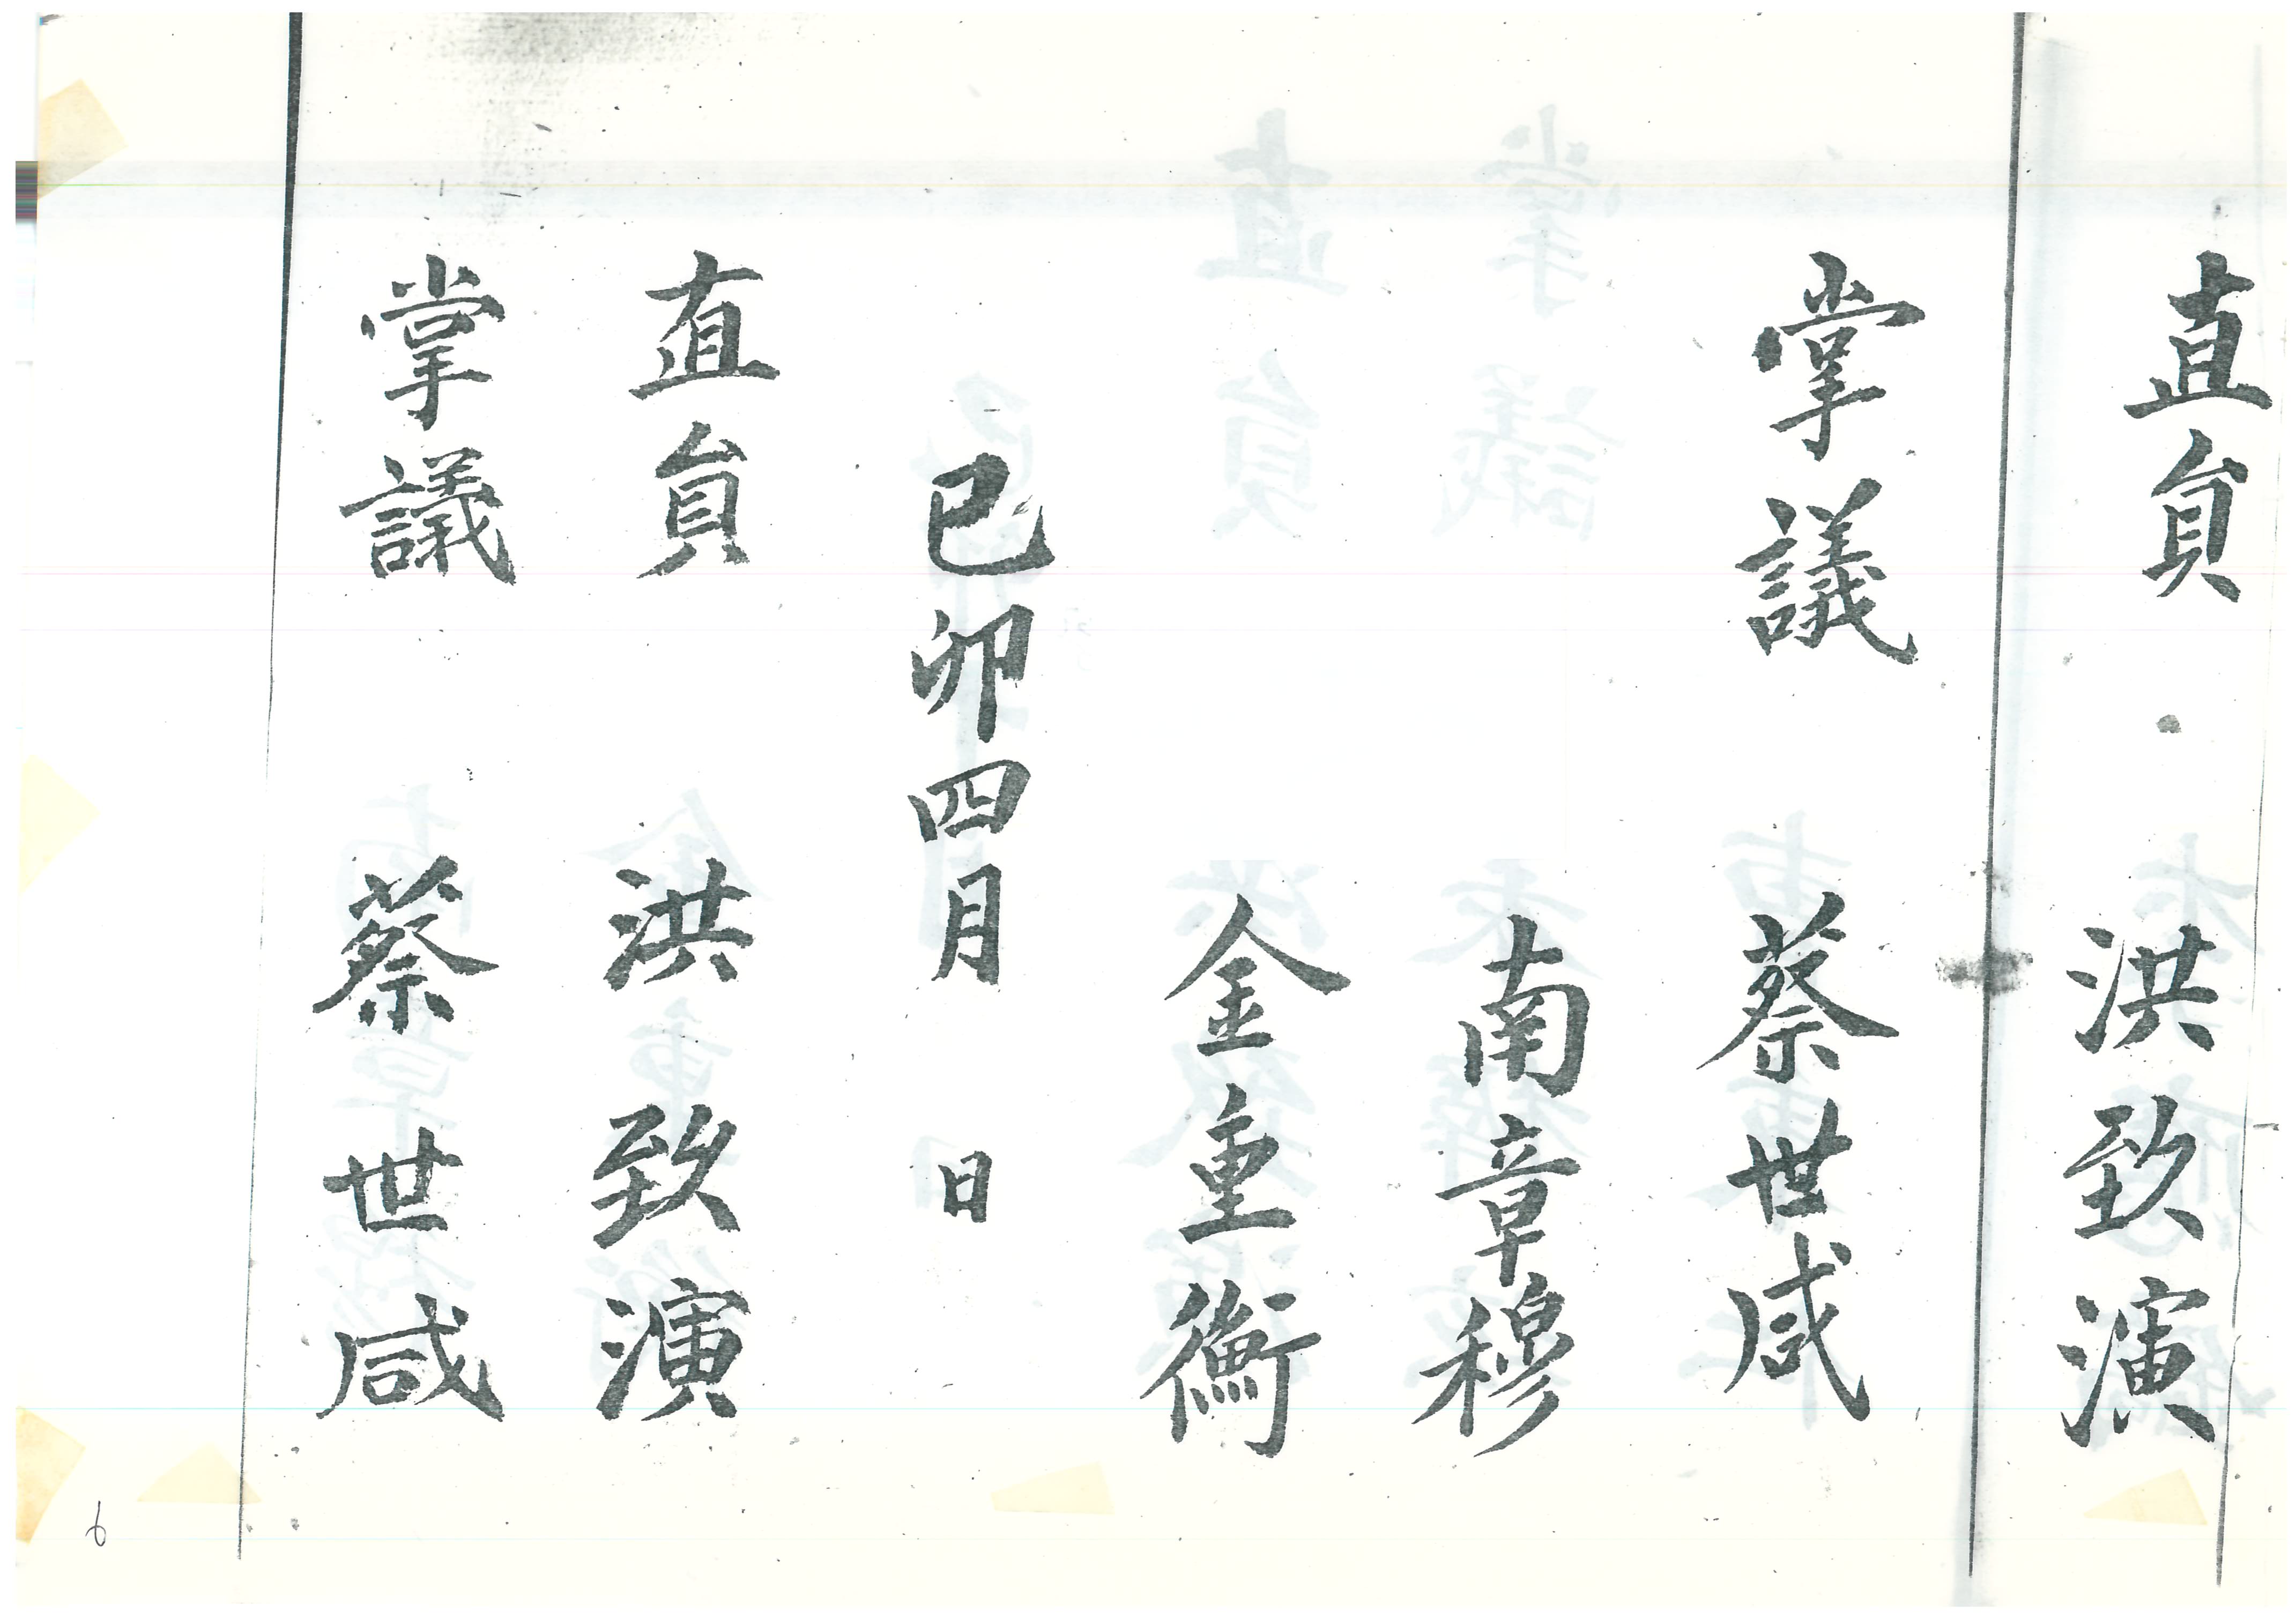 直貟 洪致演
掌議 蔡世咸
南章穆
金重衡
已卯四月 日
直貟 洪致演
掌議 蔡世咸
6